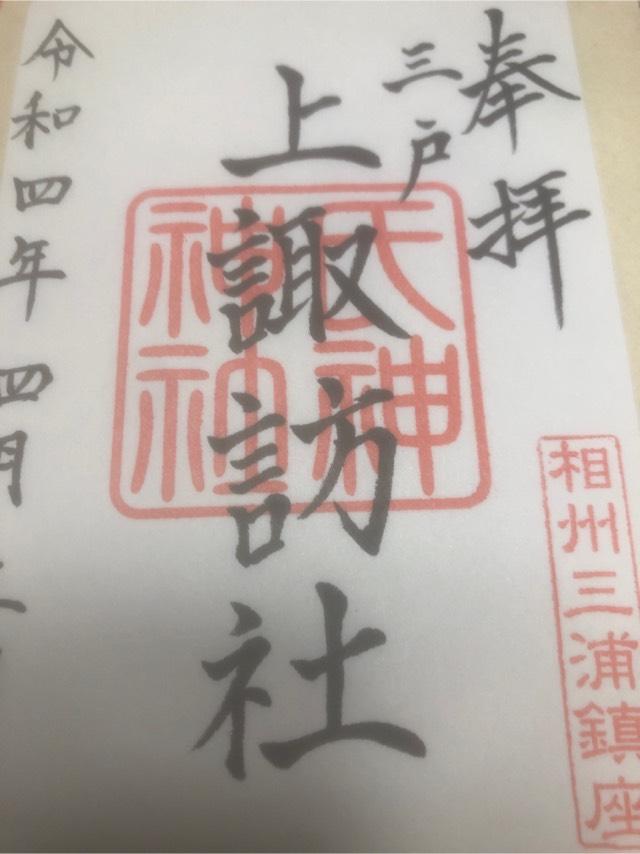 奉拝
三戸
上諏訪社
相州三浦鎮座
令和四年四月